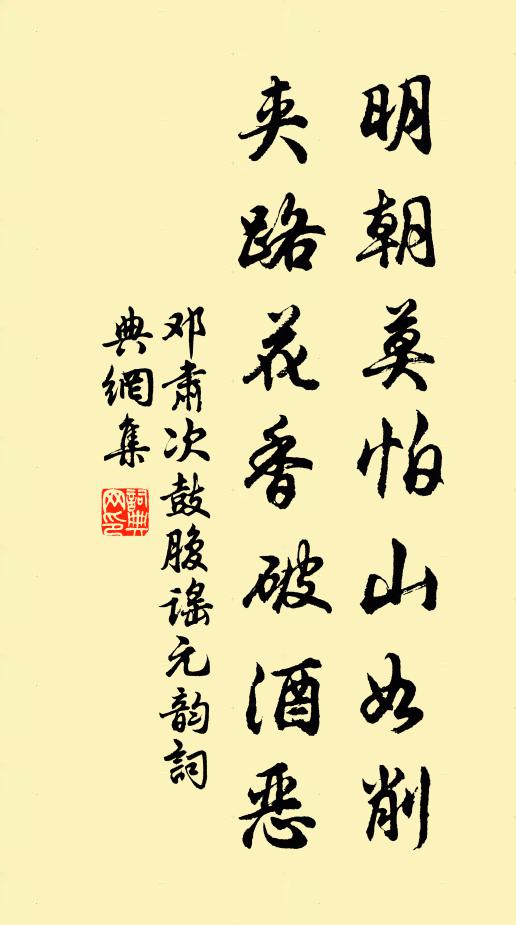 明朝莫怕山如削
夹路花香破酒恶
邓肃次鼓腹谣元韵詞
典網集
詞典網印